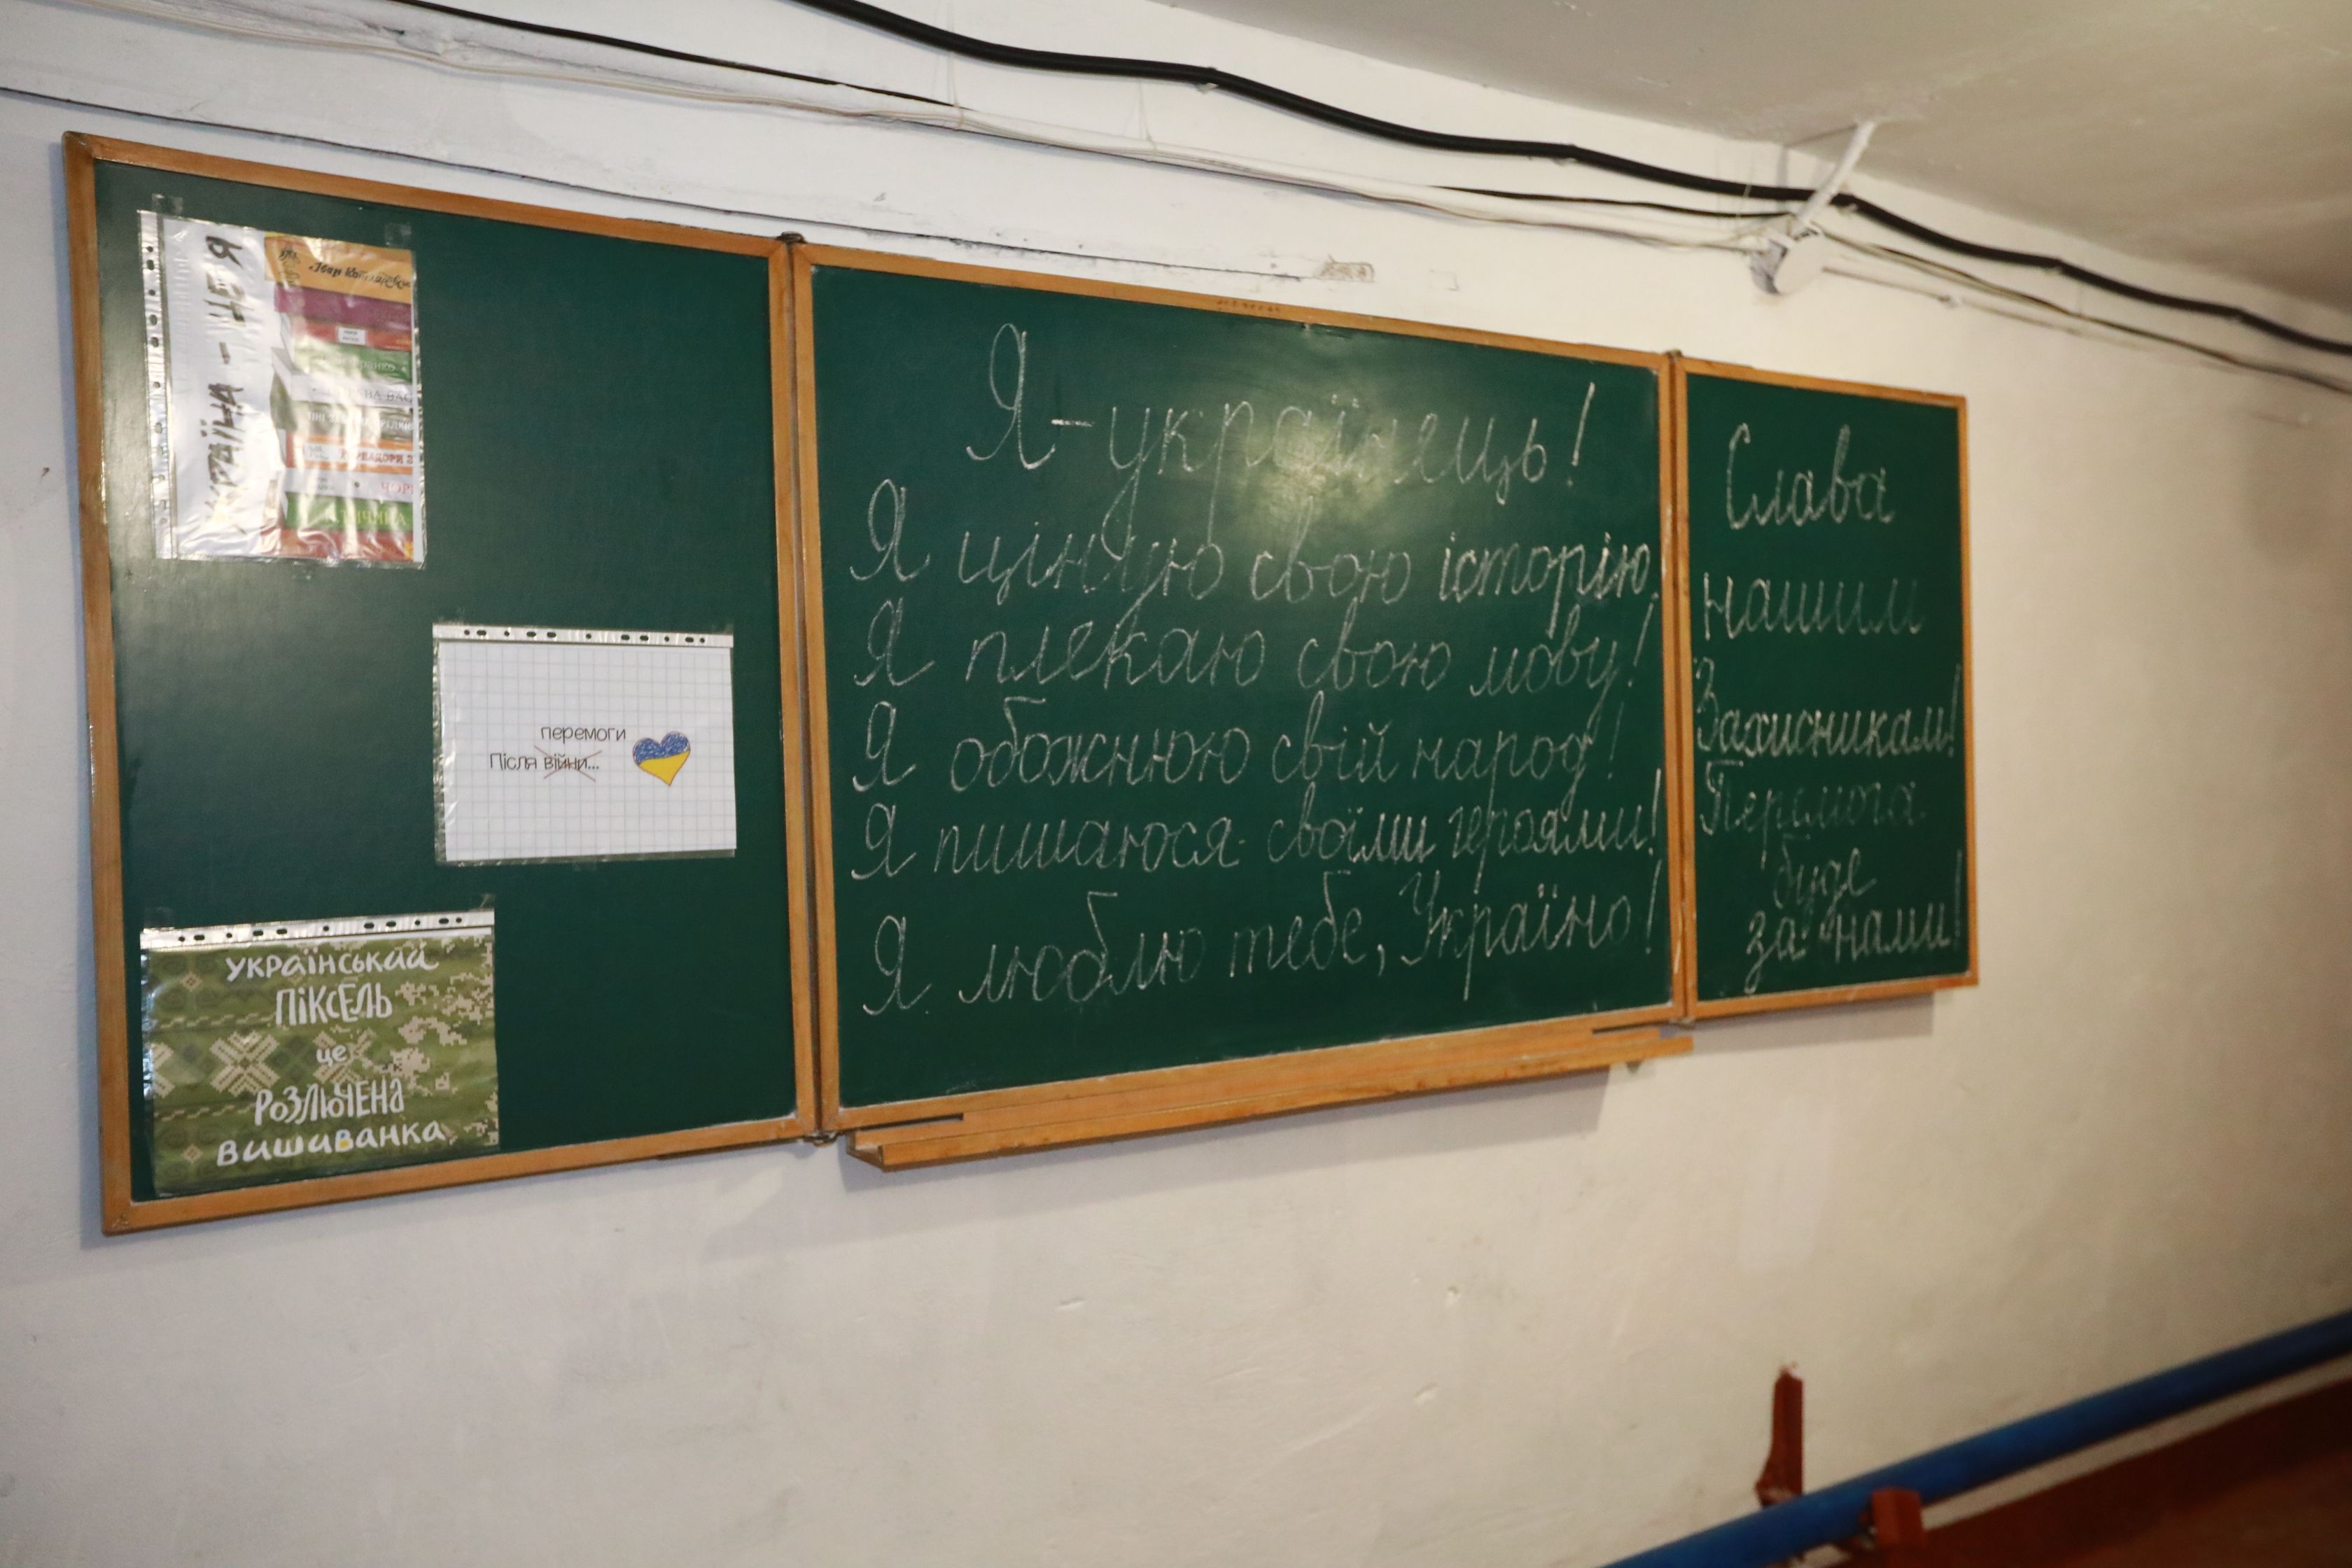 УКРАЇНА - ЦЕ Я
перемоги
Після війни...
український
піксель
це
розлючена
вишиванка
Я - українець!
Я ціную свою історію,
Я плекаю свою мову!
Я обожнюю свій народ!
Я пишаюся своїми героями!
Я люблю тебе, Україно!
Слава
нашим
Захисникам!
Перемога
буде
за нами!